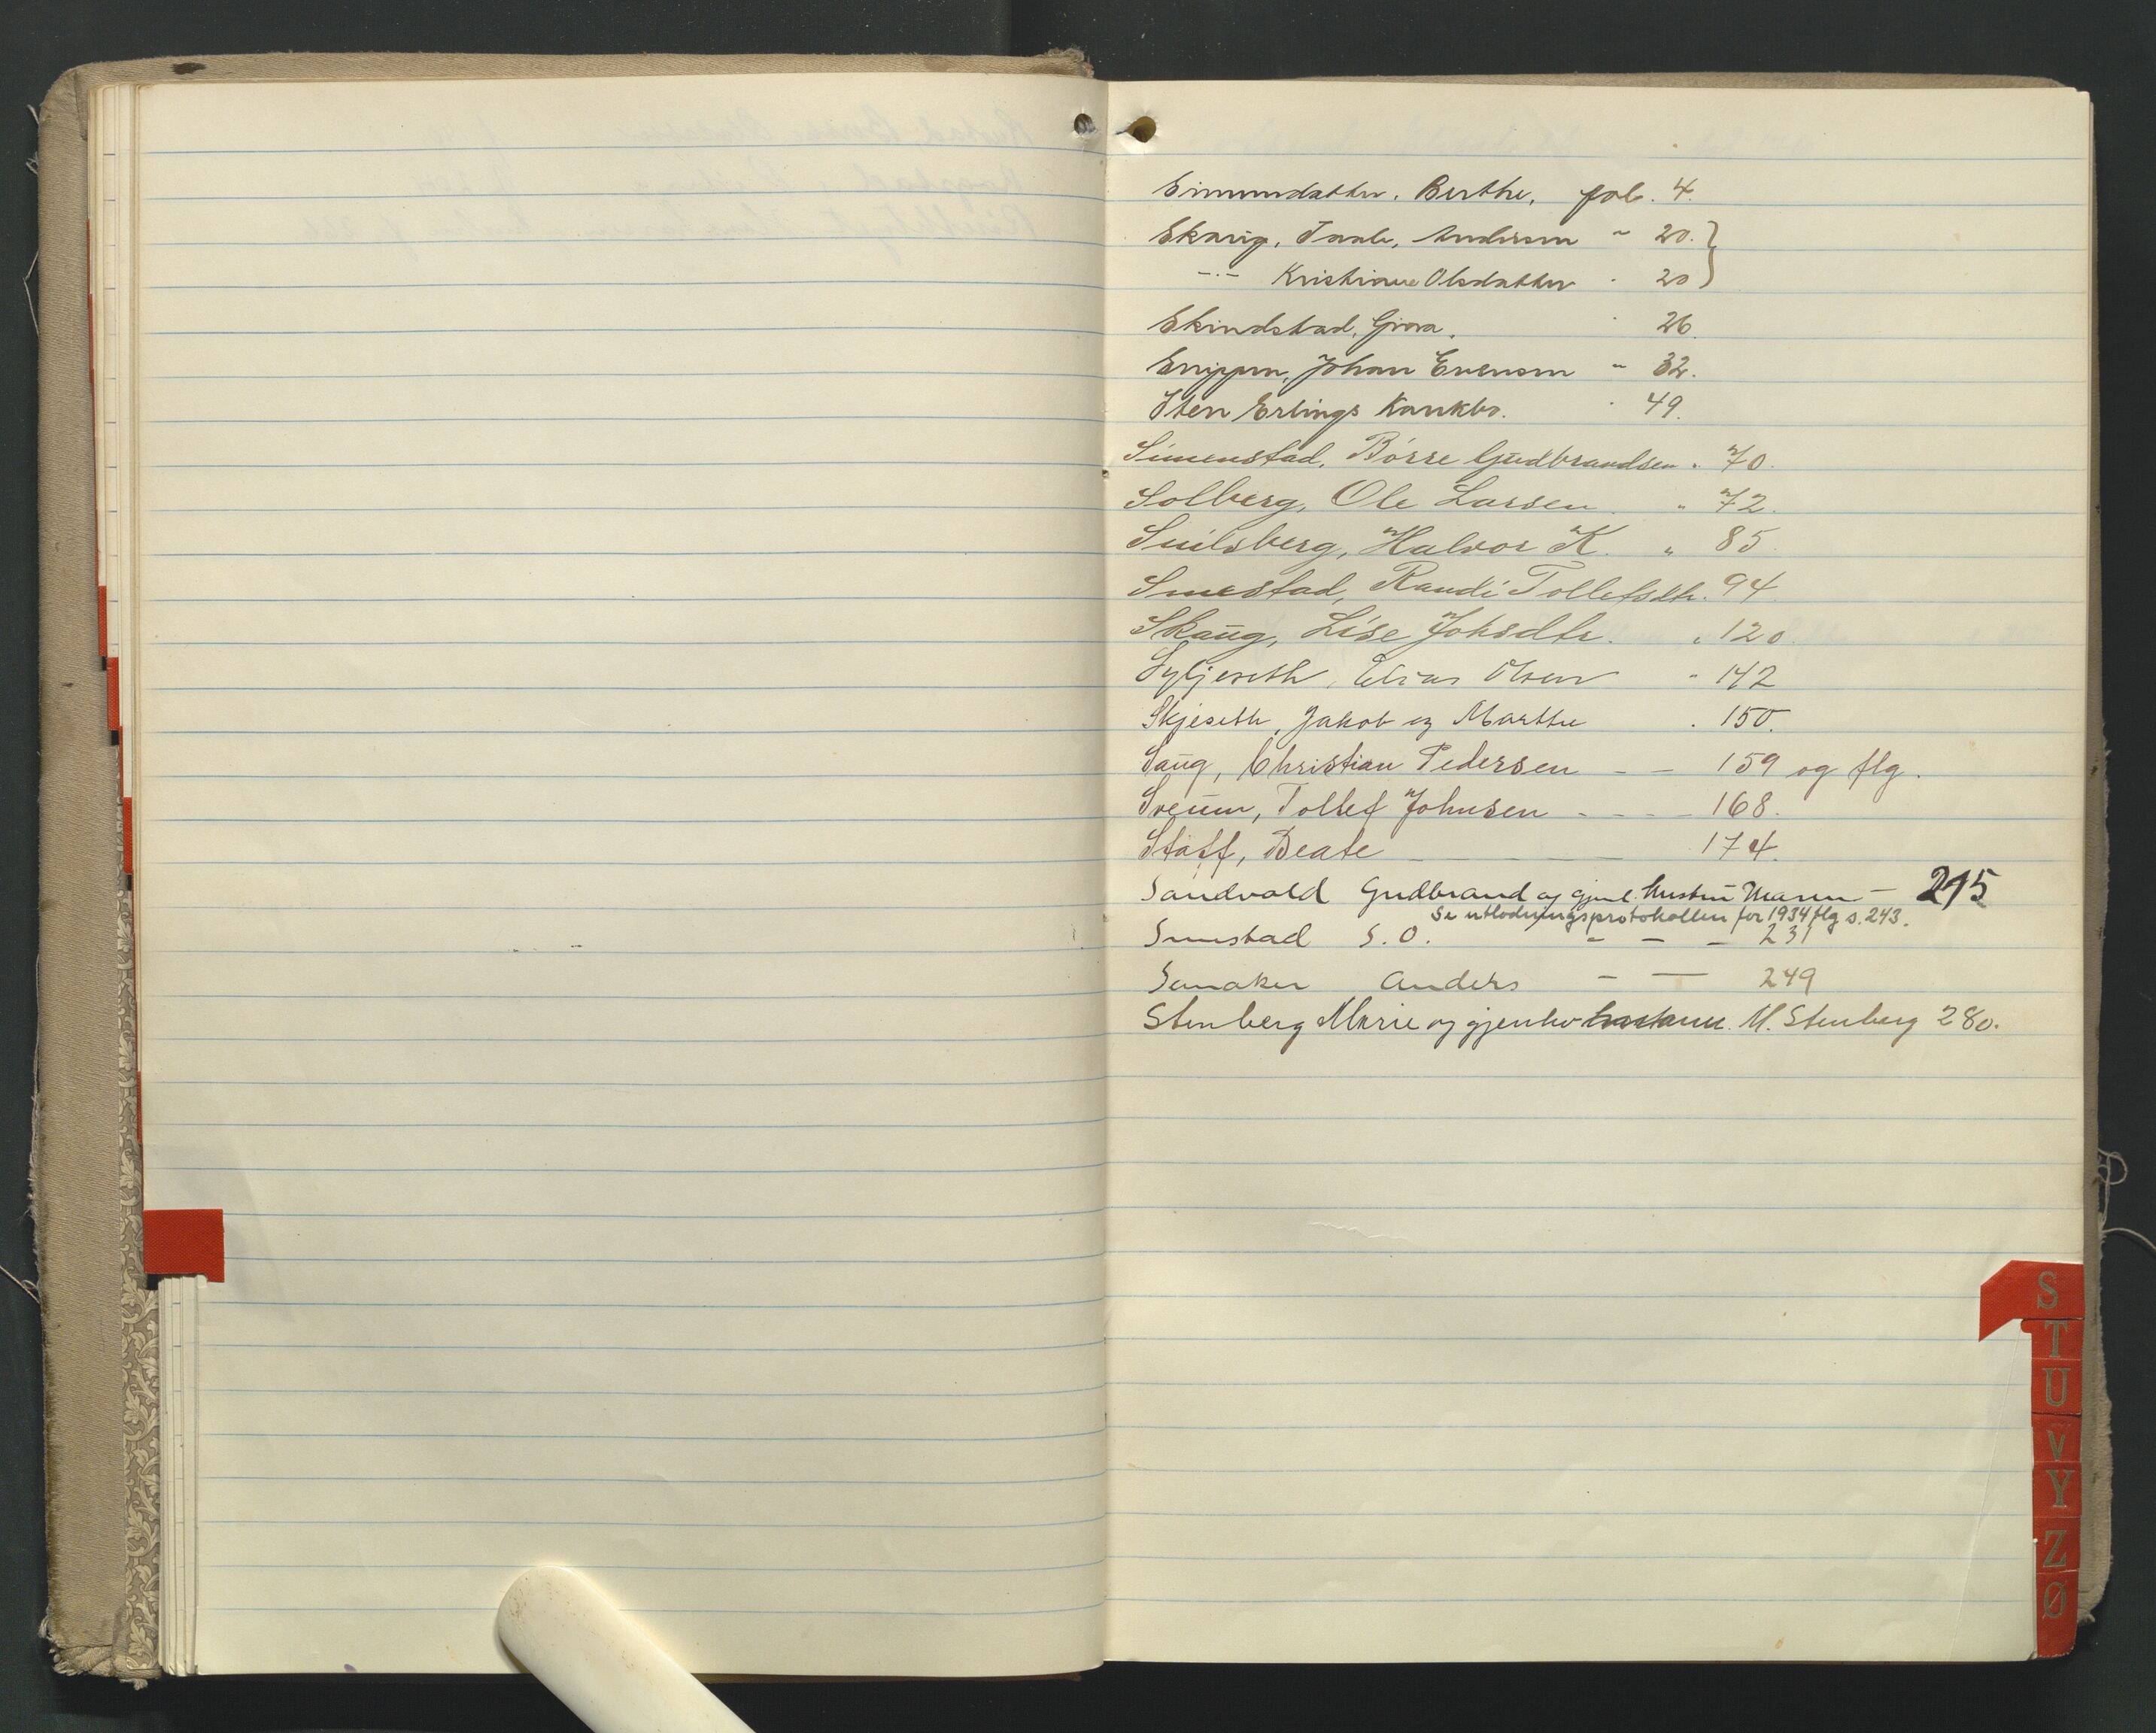 Simensdatter, Berthe, fol. 4.
Skaug, Torste, Andersen " 20. }
-"- Kristiane Olsdatter " 20 }
Skindstad, Giova. " 26
Snippen, Johan Evensen " 32.
Sten Erlings Konkbo. " 49.
Simenstad, Börre Gudbrandsen " 70.
Solberg, Ole Larsen " 72.
Smilsberg, Halvor K. " 85
Smestad, Randi Tollefsdtr. 94
Skaug, Lise Johsdtr. " 120
Syljeseth, Elias Olsen " 142
Skjeseth, Jakob og Marthe " 150.
Saug, Christian Pedersen - - 159 og flg.
Sveum, Tollef Johnsen - - - - 168.
Staff, Beate 174.
Sandvold Gudbrand og gjenl. hustru Maren - 215
Se utlodningsprotokollen for 1934 flg s. 243.
Smestad S. O. - - - 231
Semaker Anders - - 249
Stenberg Marie og gjenlev M. Stenberg 280.
S
T
U
V
Y
Z
Ø